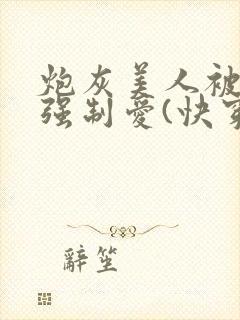 炮灰美人被
强制爱(快穿
辭笙